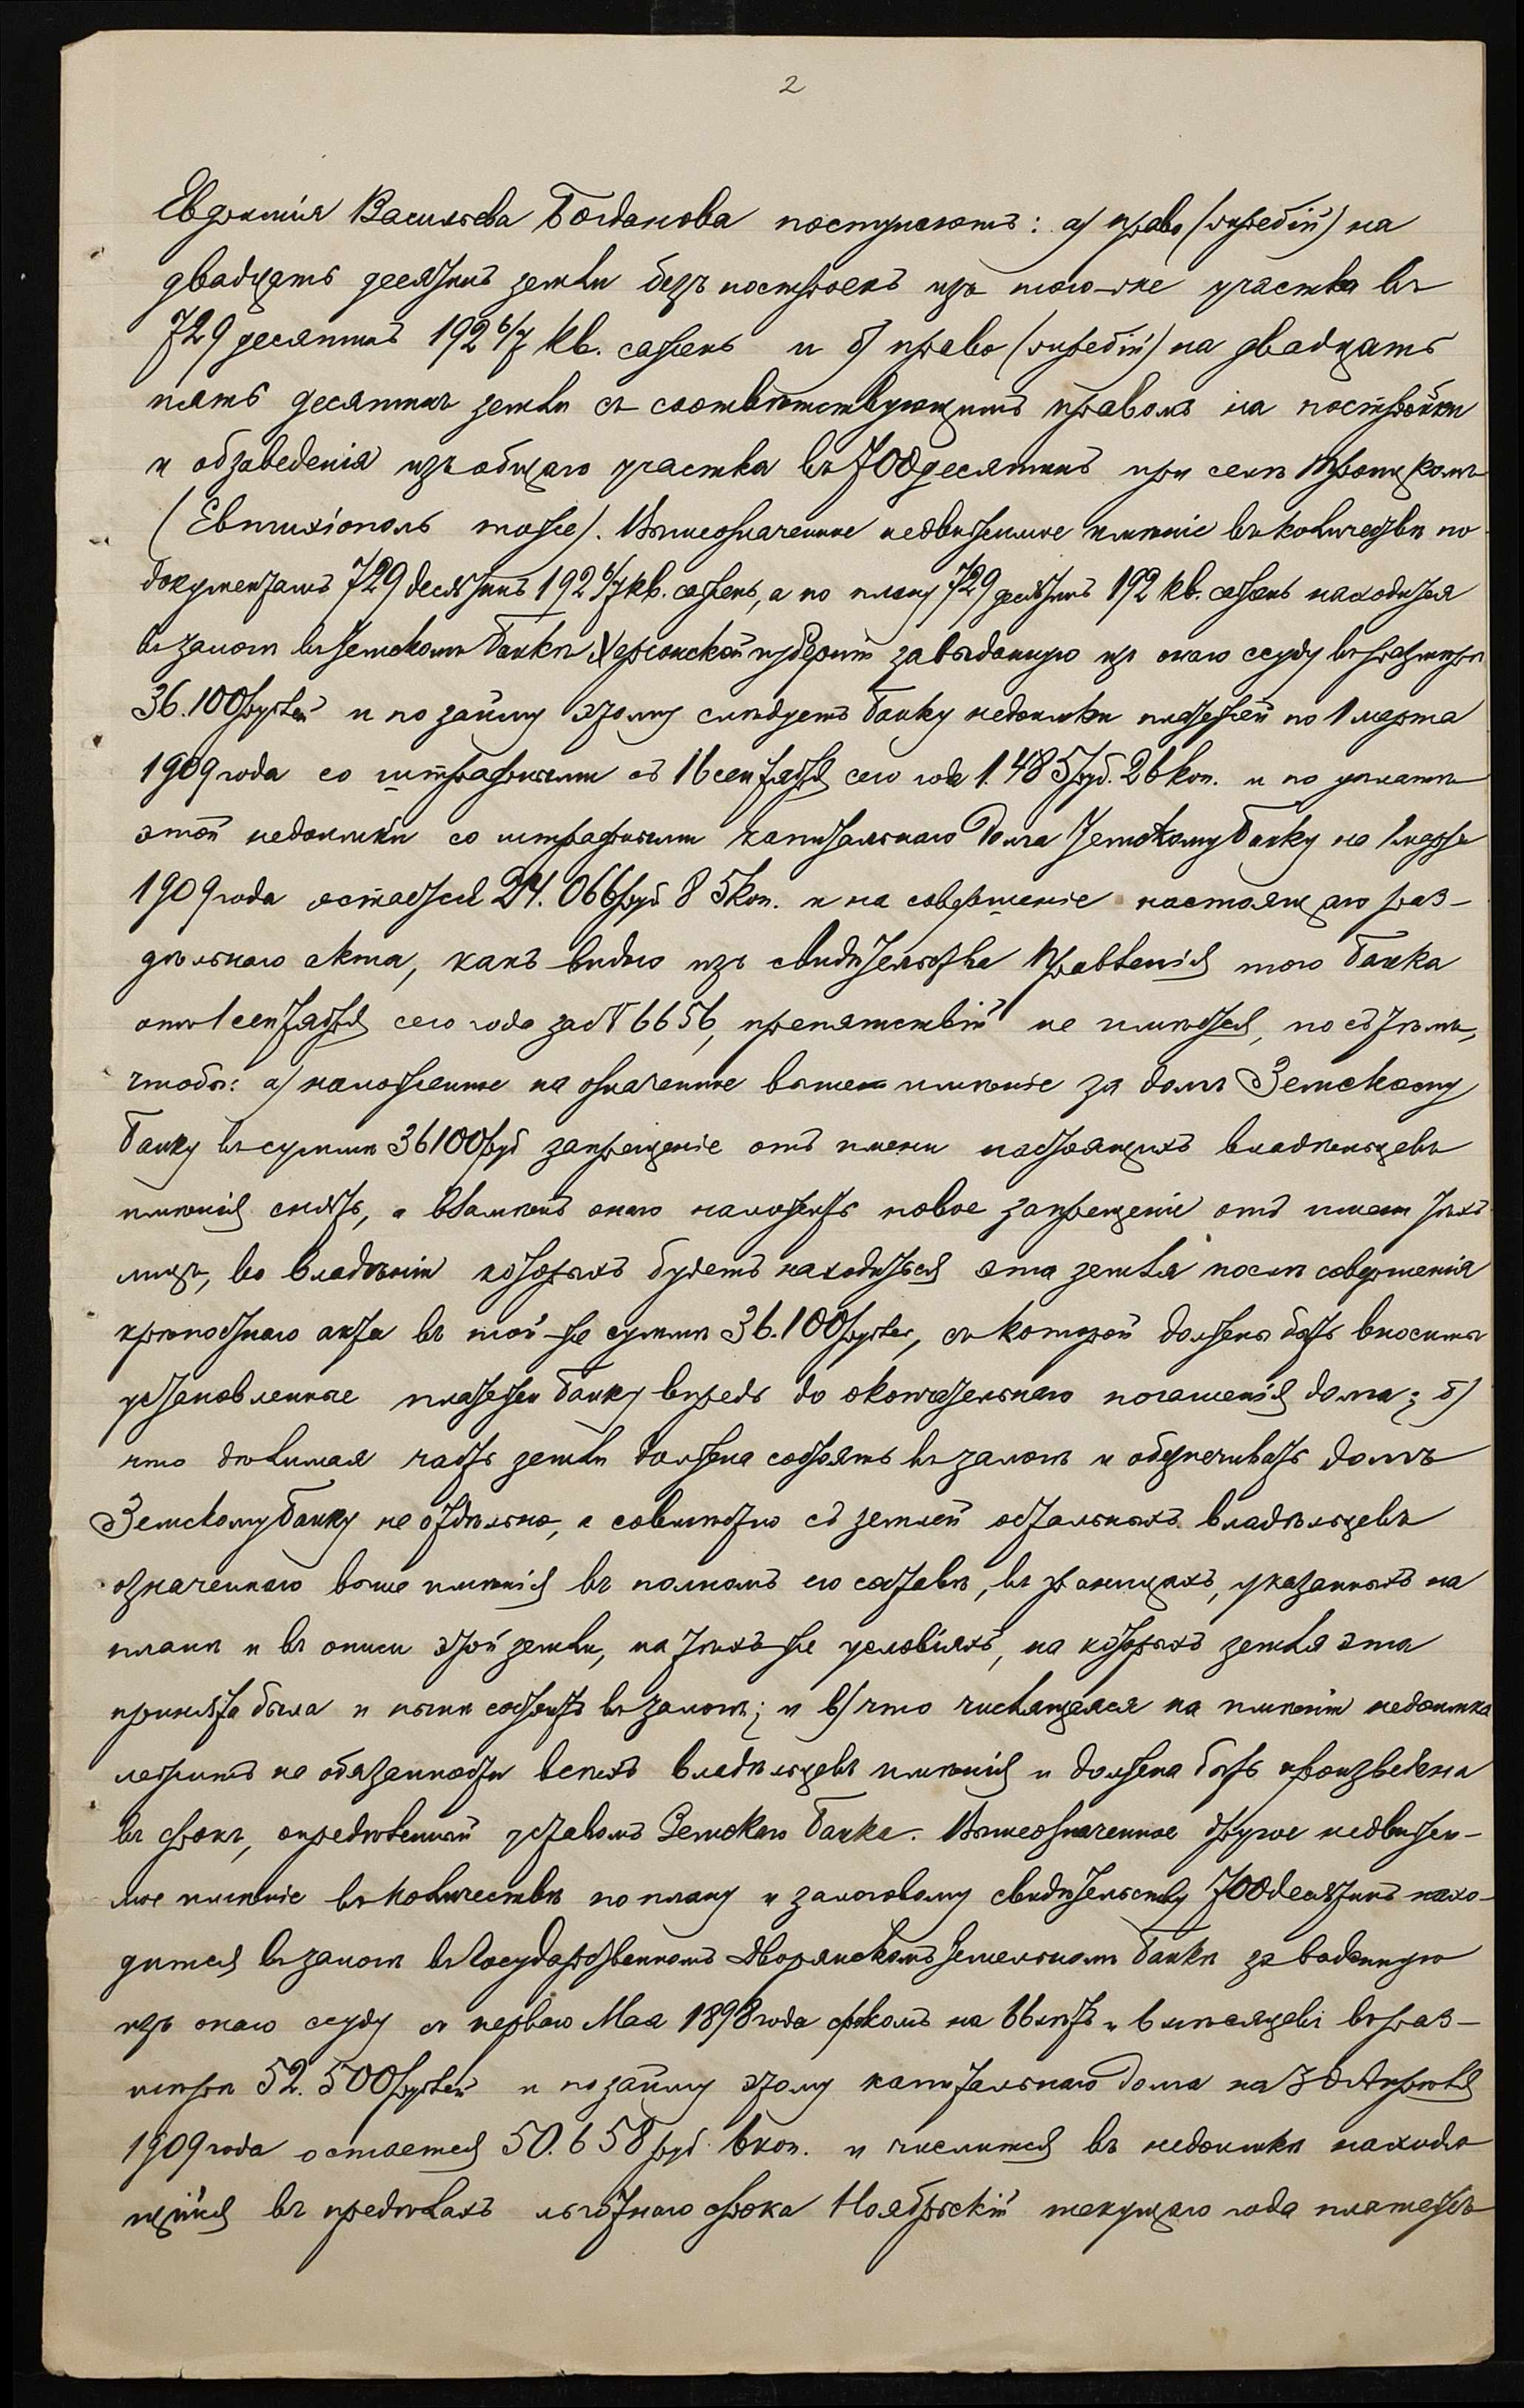 2
Евдокія Васильева Богданова поступаютъ: а) право (жребій) на
двадцать десятинъ земли безъ построекъ изъ того-же участка въ
729 десятинъ 192 6/7 кв. сажень и б) право (жребій) на двадцать
пять десятинъ земли съ соотвѣтствующимъ правомъ на постройки
и обзаведенія изъ общаго участка въ 700 десятинъ при селѣ Троицкомъ
(Евтихіополь тоже). Вышеозначенное недвижимое имѣніе въ количествѣ по
документамъ 729 десятинъ 192 6/7 кв. сажень, а по плану 729 десятинъ 192 кв. сажень находится
въ залогѣ въ Земскомъ Банкѣ Херсонской губерніи за выданную изъ онаго ссуду въ размѣрѣ
36.100 рублей и по займу этому слѣдуетъ банку недоимки платежей по 1 марта
1909 года со штрафными съ 16 сентября сего года 1.485 руб. 26 коп. и по уплатѣ
этой недоимки со штрафными капитальнаго долга Земскому банку на 1 марта
1909 года остается 24.066 руб 85 коп. и на совершеніе настоящаго раз-
дѣльнаго акта, какъ видно изъ свидѣтельства Правленія того Банка
отъ 1 сентября сего года за № 6656, препятствій не имѣется, но съ тѣмъ,
чтобы: а) наложенное на означенное выше имѣніе за долгъ Земскому
банку въ суммѣ 36100 руб запрещеніе отъ имени настоящихъ владѣльцевъ
имѣнія снять, а взамѣнъ онаго наложить новое запрещеніе отъ имени тѣхъ
лицъ, во владѣніи которыхъ будетъ находиться эта земля послѣ совершенія
крѣпостнаго акта въ той-же суммѣ 36.100 рублей, съ которой должены быть вносимы
установленные платежи банку впредь до окончательнаго погашенія долга; б)
что дѣлимая часть земли должена состоять въ залогѣ и обезпечивать долгъ
Земскому банку не отдѣльно, а совмѣстно съ землей остальныхъ владѣльцевъ
означеннаго выше имѣнія въ полномъ его составѣ, въ границахъ, указанныхъ на
планѣ и въ описи этой земли, на тѣхъ-же условіяхъ, на которыхъ земля эта
принята была и нынѣ состоитъ въ залогѣ; и в) что числящаяся на имѣніи недоимка
лежитъ на обязанности всѣхъ владѣльцевъ имѣнія и должена быть произведена
въ срокъ, опредѣленный уставомъ Земскаго банка. Вышеозначенное другое недвижи-
мое имѣніе въ количествѣ по плану и залоговому свидѣтельству 700 десятинъ нахо-
дится въ залогѣ въ Государственномъ Дворянскомъ Земельномъ банкѣ за выданную
изъ онаго ссуду съ перваго Мая 1898 года срокомъ на 66 лѣтъ и 6 мѣсяцевъ въ раз-
мѣрѣ 52.500 рублей и по займу этому капитальнаго долга на 30 Апрѣля
1909 года остается 50.658 руб 6 коп. и числится въ недоимкѣ находя
щійся въ предѣлахъ льготнаго срока Ноябрьскій текущаго года платежъ